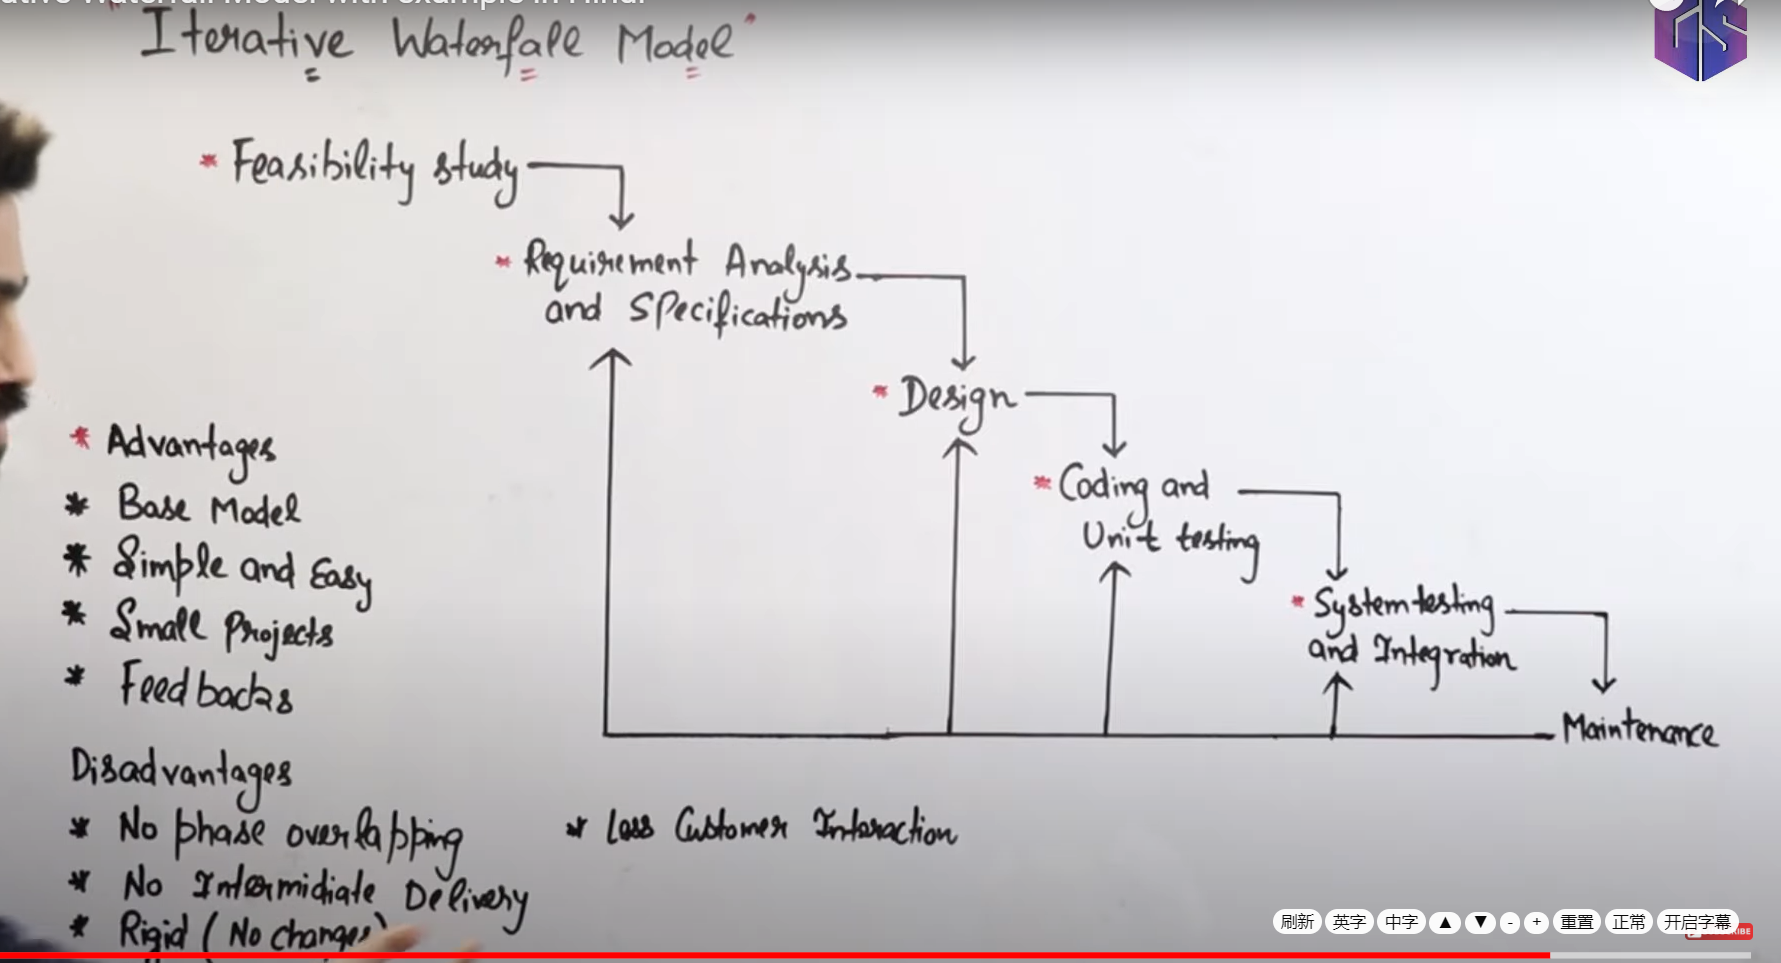 Iterative Waterfall Model with example in Hindi
"Iterative Waterfall Model"
* Feasibility study
* Requirement Analysis
and Specifications
* Design
* Coding and
Unit testing
* System testing
and Integration
Maintenance
* Advantages
* Base Model
* Simple and Easy
* Small Projects
* Feedbacks
Disadvantages
* No phase overlapping
* No Intermidiate Delivery
* Rigid (No changes)
* Less Customer Interaction
刷新 英字 中字 ▲ ▼ - + 重置 正常 开启字幕